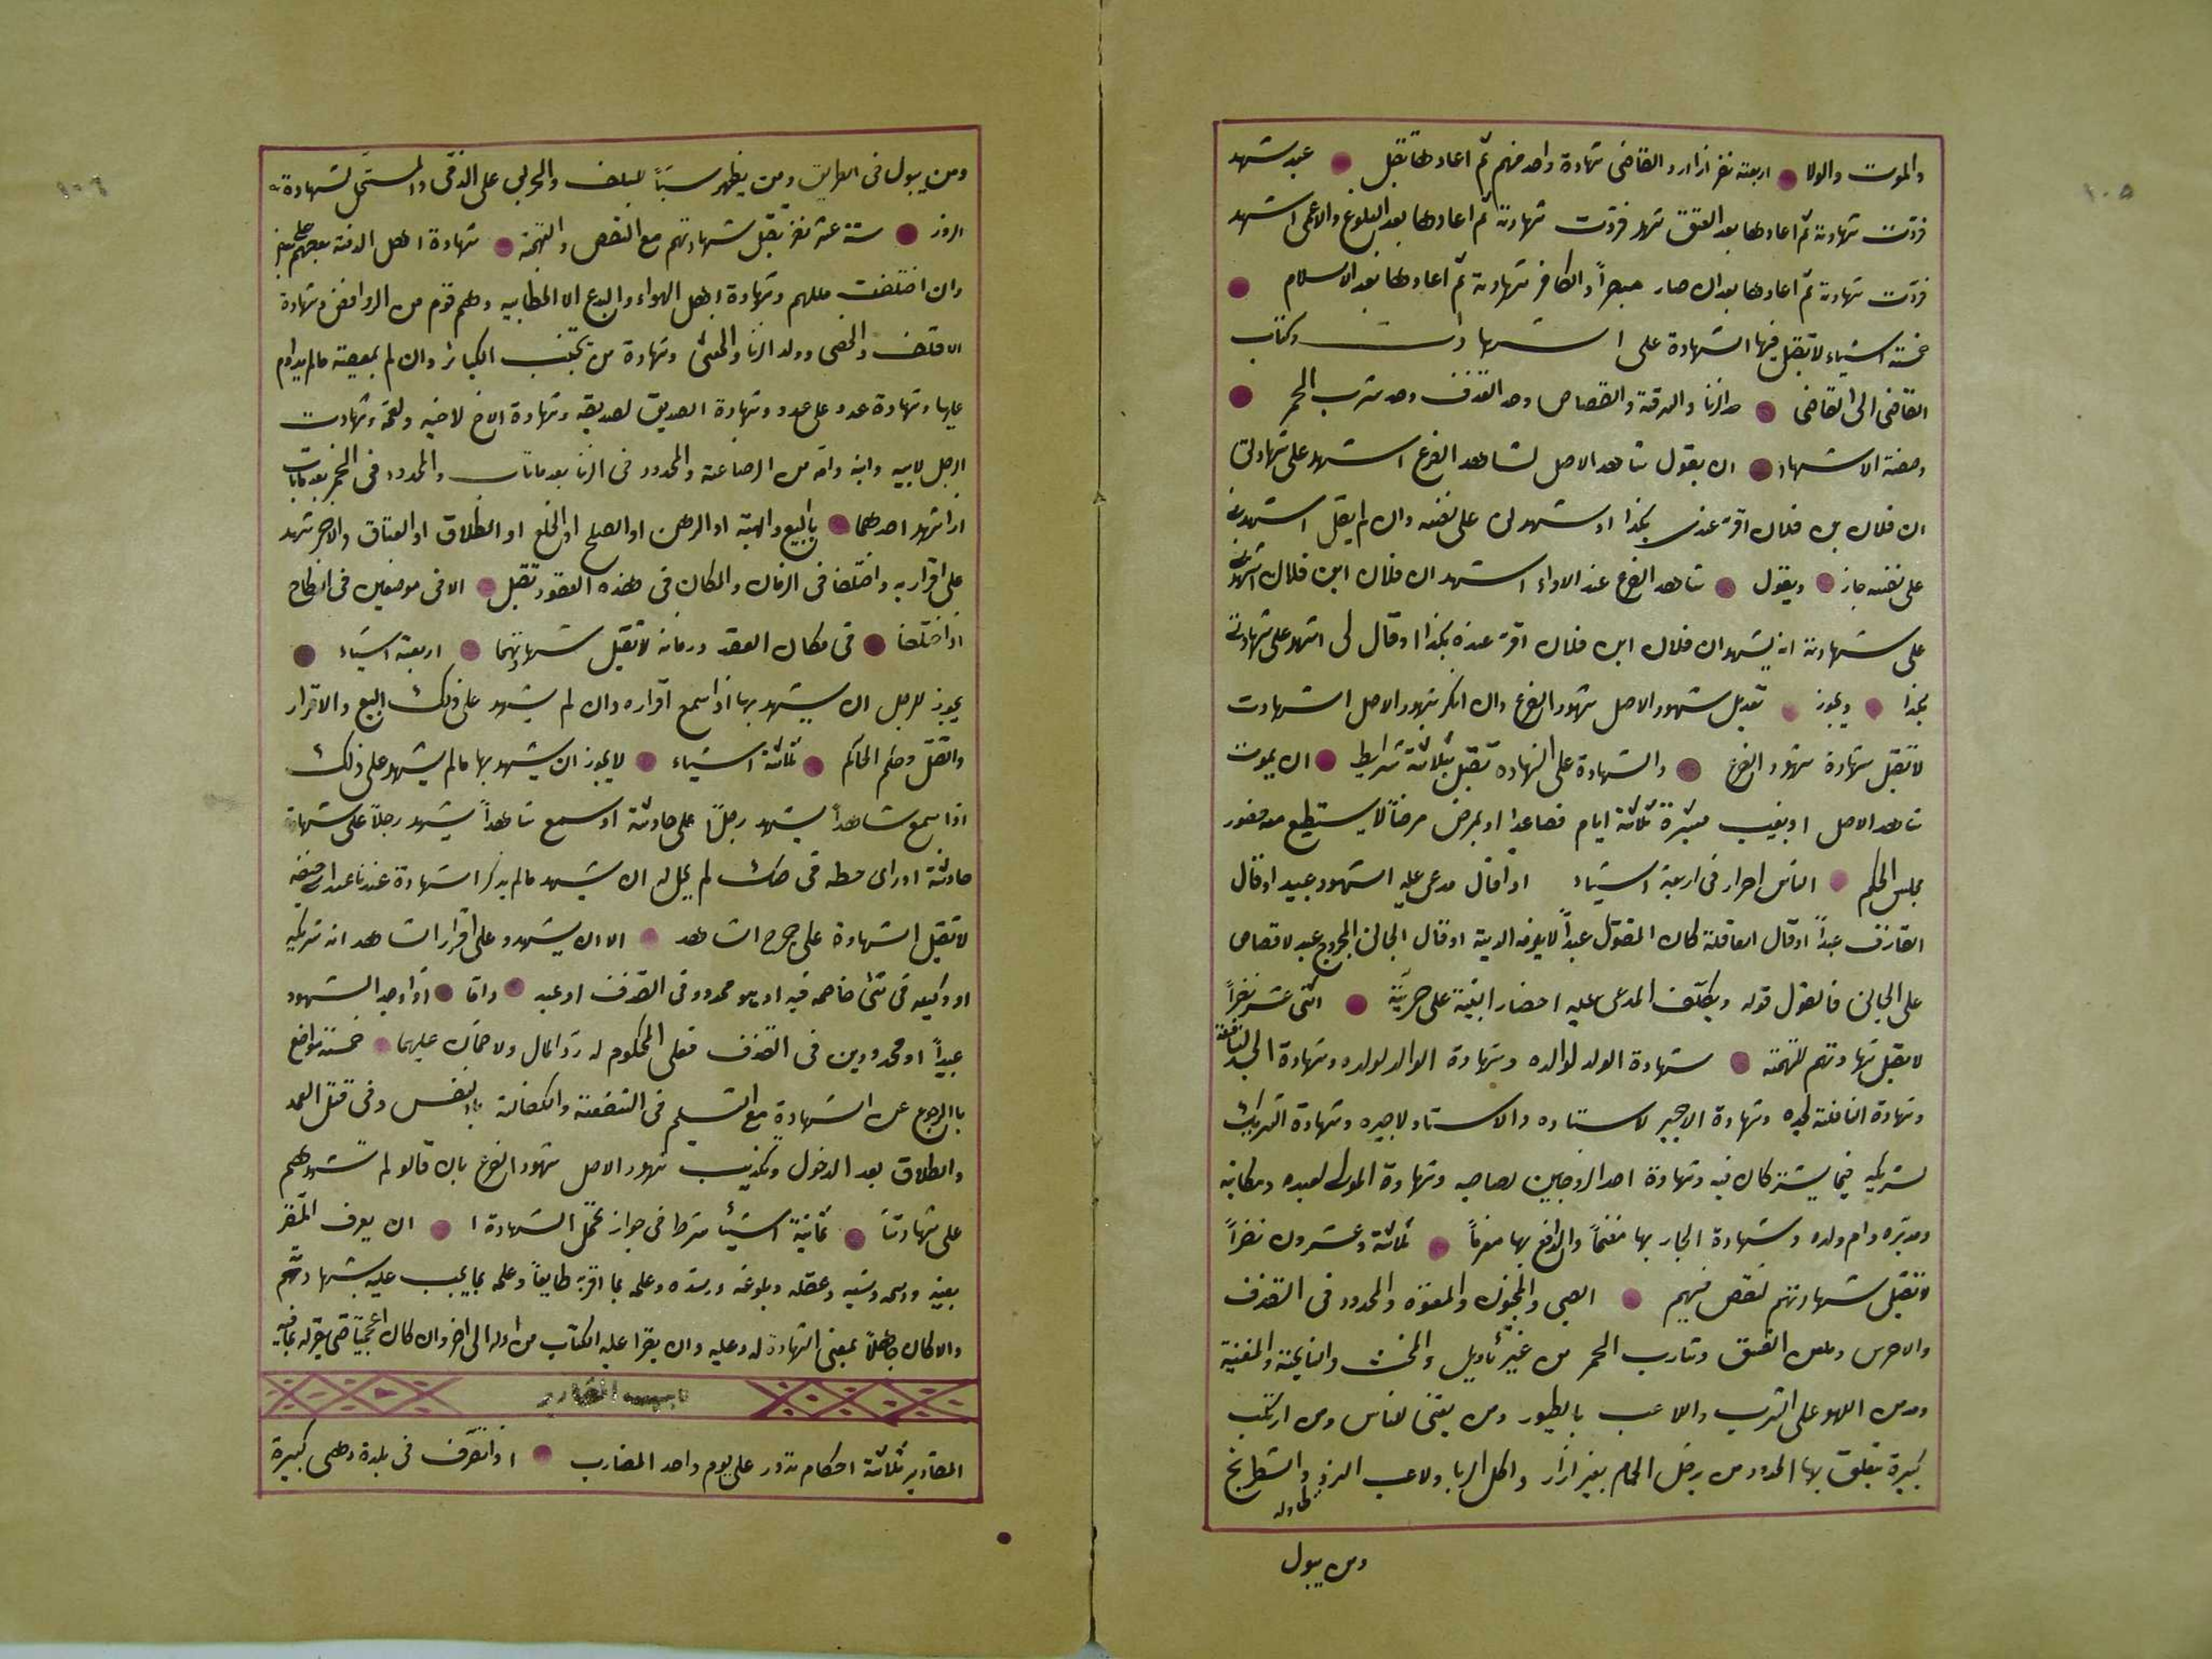 ١٠٥
والموت والولا اربعة نفر اذا رد القاضى شهادة واحد منهم ثم اعادها تقبل عبد شهد
فردت شهادته ثم اعادها بعد العتق شهد فردت شهادته ثم اعادها بعد البلوغ والاعمى اشهد
فردت شهادته ثم اعادها بعد ان صار مبصراً والكافر شهادته ثم اعادها بعد الاسلام
خمسة اشياء لا تقبل فيها الشهادة على الشهادت وكتاب
القاضى الى القاضى حد الزنا والسرقة والقصاص وحد القذف وحد شرب الخمر
وصفة الاشهاد ان يقول شاهد الاصل لشاهد الفرع اشهد على شهادتى
ان فلان بن فلان اقر عندى بكذا او شهد لى على نفسه وان لم يقل اشهدنى
على نفسه جاز ويقول شاهد الفرع عند الاداء اشهد ان فلان ابن فلان اشهدنى
على شهادته انه يشهد ان فلان ابن فلان اقر عنده بكذا او قال لى اشهد على شهادتى
بكذا ويجوز تعديل شهود الاصل شهود الفرع وان انكر شهود الاصل الشهادت
لا تقبل شهادة شهود الفرع والشهادة على الشهادة تقبل بثلاثة شرايط ان يموت
شاهد الاصل او يغيب مسيرة ثلاثة ايام فصاعدا او يمرض مرضاً لا يستطيع معه حضور
مجلس الحكم الناس احرار فى اربعة اشياء اذا قال مدعى عليه الشهود عبيد او قال
القاذف عبداً او قال العاقلة كان المقتول عبداً لا يلزمه الدية او قال الجانى المجروح عبد لا قصاص
على الجانى فالقول قوله ويكلف المدعى عليه احضار البينة على حريته اثنى عشر نفراً
لا تقبل شهادتهم للتهمة شهادة الولد لوالده وشهادة الوالد لولده وشهادة الجد لنافلته
وشهادة النافلة لجده وشهادة الاجير لاستاده والاستاد لاجيره وشهادة الشريك
لشريكه فيما يشتركان فيه وشهادة احد الزوجين لصاحبه وشهادة المولى لعبده ومكاتبه
ومدبره وام ولده وشهادة الجار بها مغنماً والدافع بها مغرماً ثلاثة وعشرون نفراً
لا تقبل شهادتهم لنقص فيهم الصبى والمجنون والمعتوه والمحدود فى القذف
والاخرس ومعلن الفسق وشارب الخمر من غير تأويل والمخنث والنايحة والمغنية
ومدمن اللهو على الشرب واللاعب بالطيور ومن يغنى للناس ومن ارتكب
كبيرة يتعلق بها الحدود من يدخل الحمام بغير ازار واكل الربا ولاعب النرد والشطرنج
طاوله
ومن يبول
١٠٦
ومن يبول فى الطريق ومن يظهر سبّاً للسلف والحربى على الذمى والمستحل لشهادة
الزور ستة عشر نفر يقبل شهادتهم مع النقص والتهمة شهادة اهل الذمة بعضهم على بعض
وان اختلفت مللهم وشهادة اهل الهواء والبدع الا الخطابيه وهم قوم من الروافض وشهادة
الاقلف والخصى وولد الزنا والخنثى وشهادة من يجتنب الكبائر وان لم بمعصية مالم يداوم
عليها وشهادة عدو على عدو وشهادة الصديق لصديقه وشهادة الاخ لاخيه ولعمه وشهادت
الرجل لابيه وابنه وامه من الرضاعة والمحدود فى الزنا بعد ماتاب والمحدود فى الخمر بعد ماتاب
اذا شهد احدهما بالبيع والهبة او الرهن او الصلح او الخلع او الطلاق او العتاق والاخر شهد
على اقرار به واختلفا فى الزمان والمكان فى هذه العقود تقبل الا فى موضعين فى النكاح
اذا اختلفا فى مكان العقد وزمانه لا تقبل شهادتهما اربعة اشياء
يجوز للرجل ان يشهد بها اذا سمع اقراره وان لم يشهد على ذلك البيع والاقرار
والقتل وحكم الحاكم ثلاثة اشياء لايجوز ان يشهد بها مالم يشهد على ذلك
اذا سمع شاهداً يشهد رجلاً على حادثة او سمع شاهداً يشهد رجلاً على شهادة
حادثة او راى خطه فى صك لم يحل له ان يشهد مالم يذكر الشهادة عندنا عند ابى حنيفه
لا تقبل الشهادة على جرح الشاهد الا ان يشهدو على اقرار الشاهد انه شريكه
او وكيله فى شئ خاصمه فيه او هو محدود فى القذف او عبد واما اذا وجد الشهود
عبيداً او محدودين فى القذف فعلى المحكوم له رد المال ولا ضمان عليهما خمسة مواضع
باالرجوع عن الشهادة مع التسليم فى الشفعة والكفالة بالنفس وفى قتل العمد
والطلاق بعد الدخول وتكذيب شهود الاصل شهود الفرع بان قالو لم نشهدهم
على شهادتنا ثمانية اشيأ شرط فى جواز تحمل الشهادة ا ان يعرف المقر
بعينه واسمه ونسبه وعقله وبلوغه ورشده وعلمه بما اقر به طايعاً وعلمه بما يجب عليه بشهادتهم
والا كان جاهلاً بمعنى الشهادة له وعليه وان يقرا عليه الكتاب من اوله الى اخر وان كان اعجمياً حتى يقر له بمافيه
المقادير ثلاثة احكام تدور على يوم واحد المضارب اذا تصرف فى بلدة وهى كبيرة